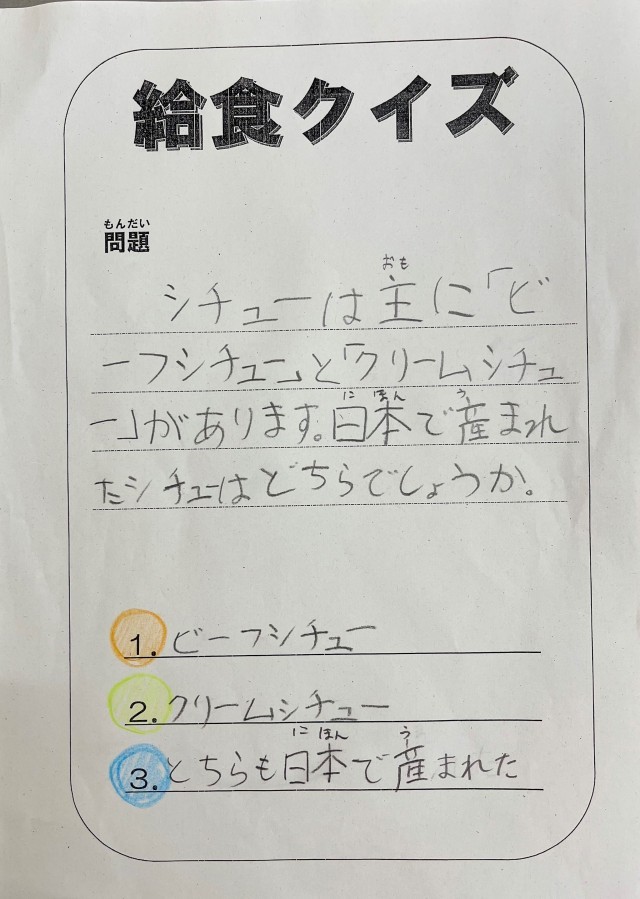 給食クイズ
もんだい
問題
おも
シチューは主に「ビ
ーフシチュー」と「クリームシチュ
にほん う
ー」があります。日本で産まれ
たシチューはどちらでしょうか。
1. ビーフシチュー
2. クリームシチュー
にほん う
3. どちらも日本で産まれた